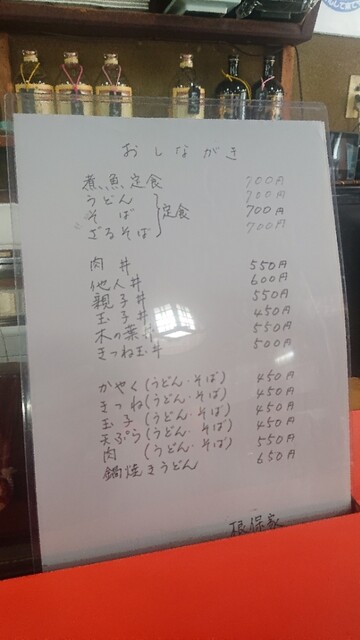 おしながき
煮魚定食 700円
うどん 700円
そば 定食 700円
ざるそば 700円
肉丼 550円
他人丼 600円
親子丼 550円
玉子丼 450円
木の葉丼 550円
きつね玉丼 500円
かやく(うどん・そば) 450円
きつね(うどん・そば) 450円
玉子(うどん・そば) 450円
天ぷら(うどん・そば) 450円
肉(うどん・そば) 550円
鍋焼きうどん 650円
根保家